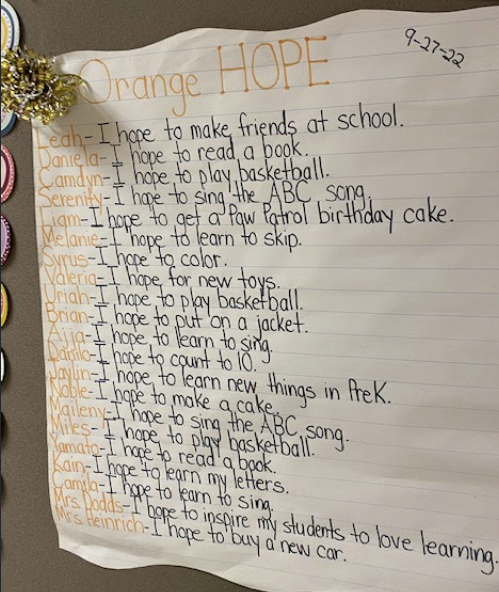 9-27-22
Orange HOPE
Leah-I hope to make friends at school.
Daniela-I hope to read a book.
Camdyn-I hope to play basketball.
Serenity-I hope to sing the ABC song.
Liam-I hope to get a Paw Patrol birthday cake.
Melanie-I hope to learn to skip.
Syrus-I hope to color.
Valeria-I hope for new toys.
Uriah-I hope to play basketball.
Brian-I hope to put on a jacket.
I hope to learn to sing.
Danilo-I hope to count to 10.
Jaylin-I hope to learn new things in PreK.
Noble-I hope to make a cake.
Maileny-I hope to sing the ABC song.
Miles-I hope to play basketball.
Yamato-I hope to read a book.
Kain-I hope to learn my letters.
Camila-I hope to learn to sing.
Mrs. Dodds-I hope to inspire my students to love learning.
Mrs. Heinrich-I hope to buy a new car.